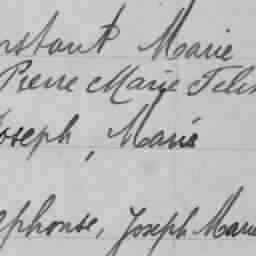 nstant Marie
Pierre Marie Félix
Joseph, Marie
lphonse, Joseph Marie